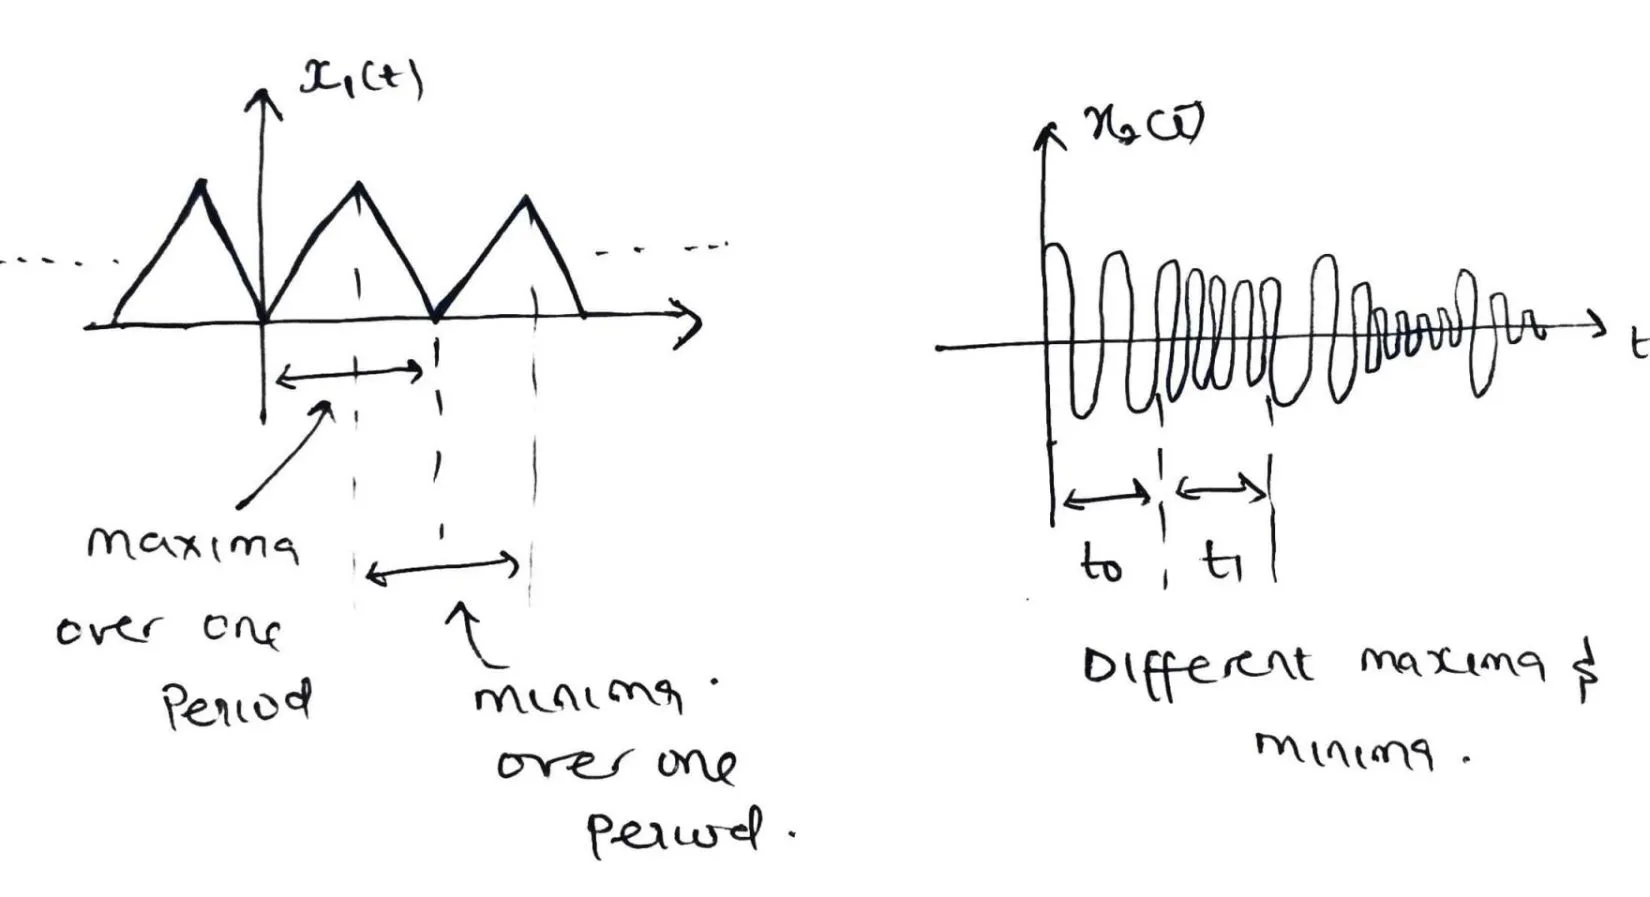 x₁(t)
maxima
over one
Period
minima.
over one
Period.
x₂(t)
t
t₀
t₁
Different maxima &
minima.